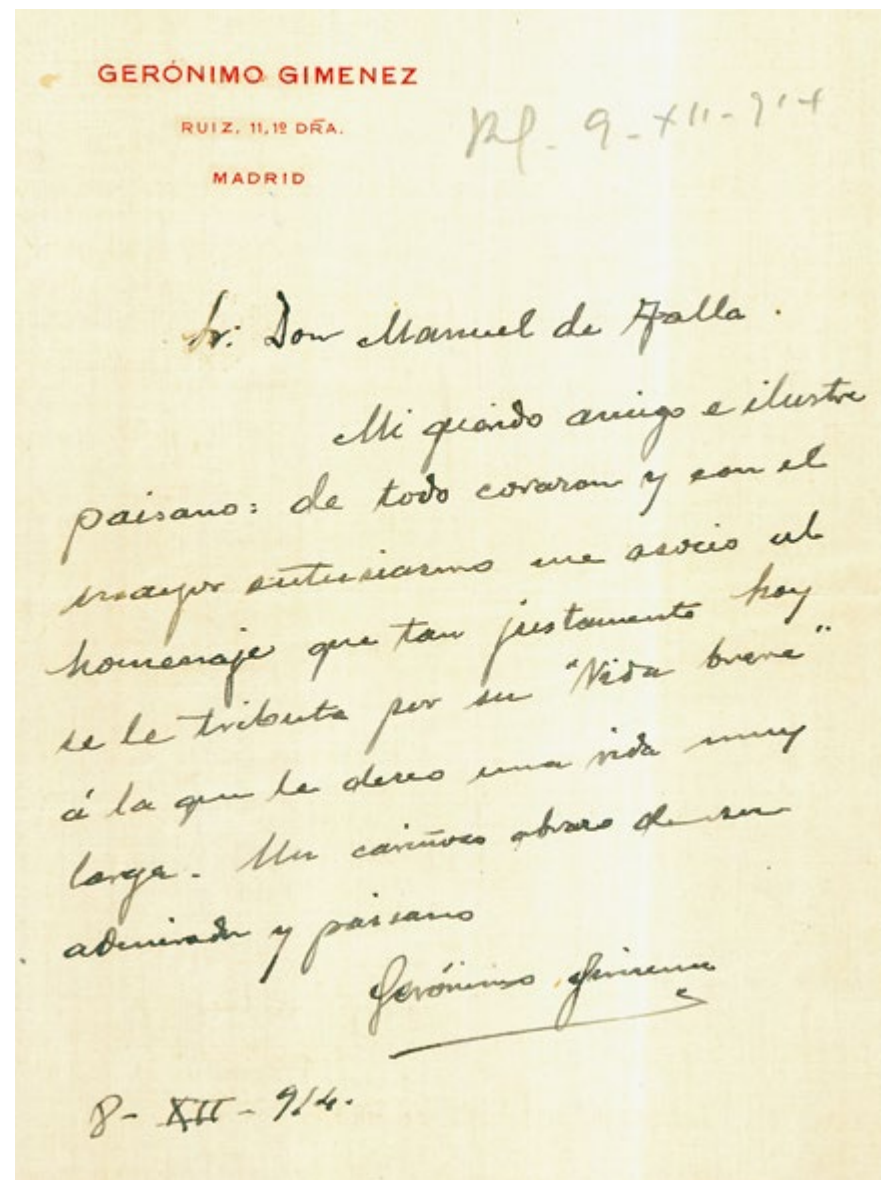 GERÓNIMO GIMENEZ
RUIZ, 11, 1º DRA.
MADRID
9-XII-914
Sr: Don Manuel de Falla.
Mi querido amigo e ilustre
paisano: de todo corazon y con el
mayor entusiasmo me asocio al
homenaje que tan justamente hoy
se le tributa por su "Vida breve"
á la que le deseo una vida muy
larga. Un cariñoso abrazo de su
admirador y paisano
Gerónimo Gimenez
8-XII-914.